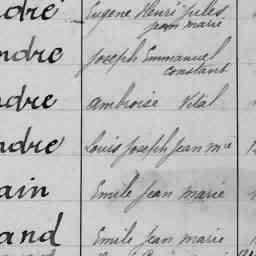 ndré Eugène Henri Jules
Jean marie
ndre Joseph Emmanuel
constant
ndre ambroise Vital
ndre Louis Joseph Jean Mie
ain Emile Jean marie
and Emile Jean marie